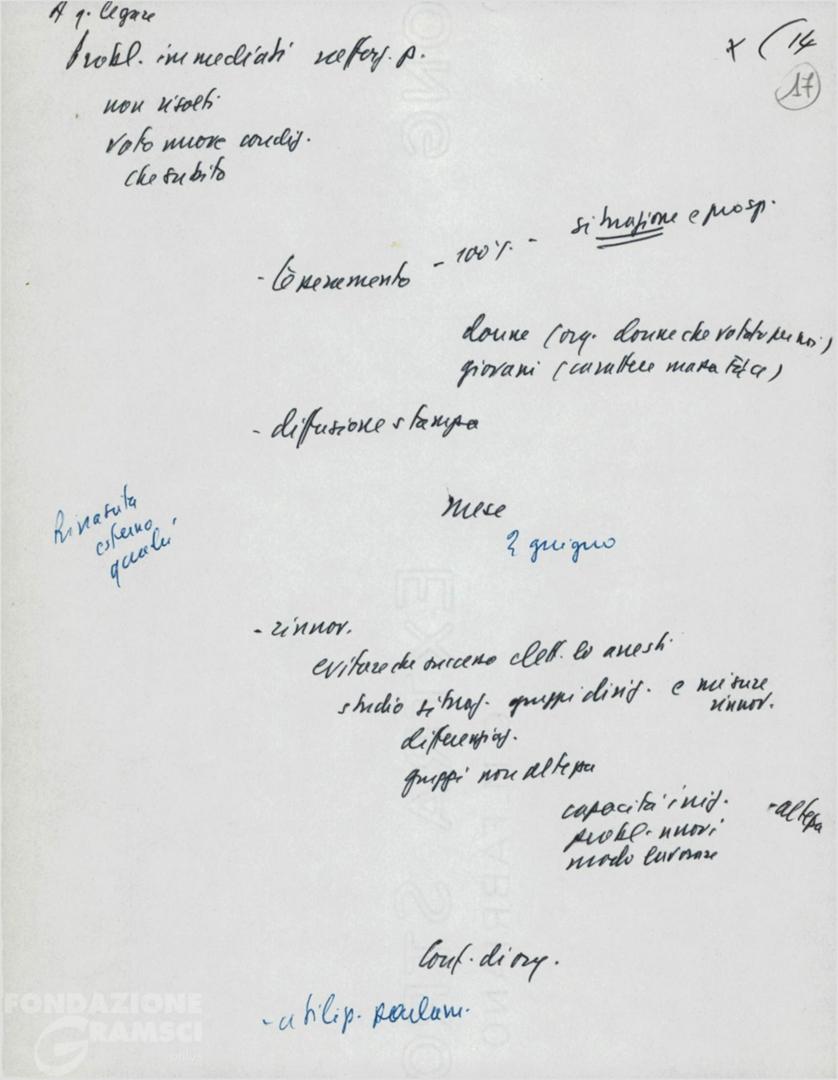 A q. legare
Probl. immediati rafforz. p.
x ( 14
17
non risolti
voto nuove condiz.
che subito
- tesseramento - 100% - situazione e prosp.
donne (org. donne che votato per noi)
giovani (carattere massa FGCI)
- diffusione stampa
Rinascita
esterno
quadri
mese
2 giugno
- rinnov.
evitare che successo elett. lo arresti
studio situaz. gruppi dirig. e misure
rinnov.
differenziaz.
gruppi non altezza
capacità iniz. - altezza
probl. nuovi
modo lavorare
Conf. di org.
- utilizz. parlam.
FONDAZIONE
GRAMSCI